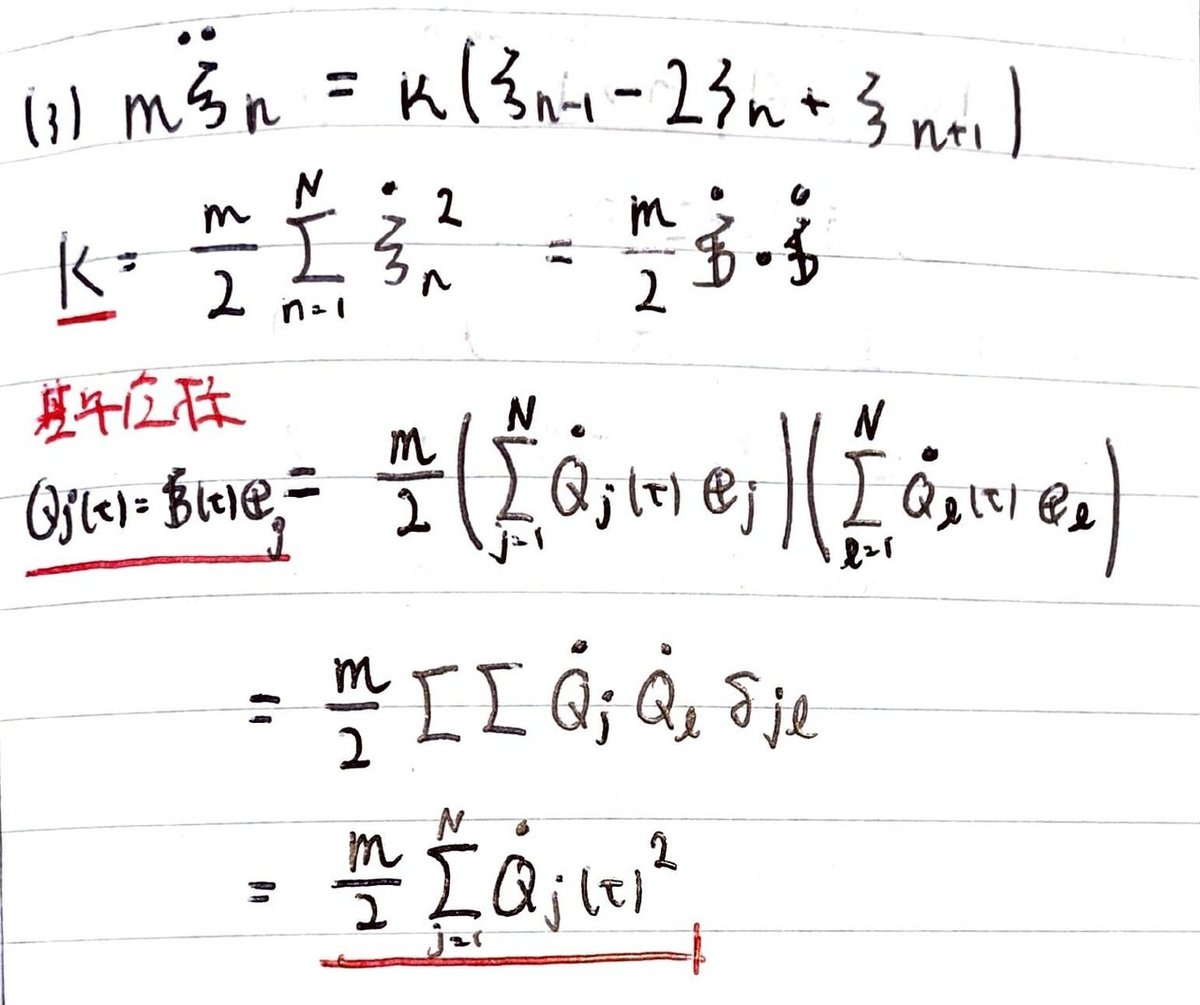 (3) mξ̈n = κ(ξn-1 - 2ξn + ξn+1)
K = m/2 Σ_{n=1}^{N} ξ̇n² = m/2 ξ̇・ξ̇
基準座標
Qj(t) = ξ(t)ej = m/2 (Σ_{j=1}^{N} Q̇j(t) ej)(Σ_{ℓ=1}^{N} Q̇ℓ(t) eℓ)
= m/2 ΣΣ Q̇j Q̇ℓ δjℓ
= m/2 Σ_{j=1}^{N} Q̇j(t)²